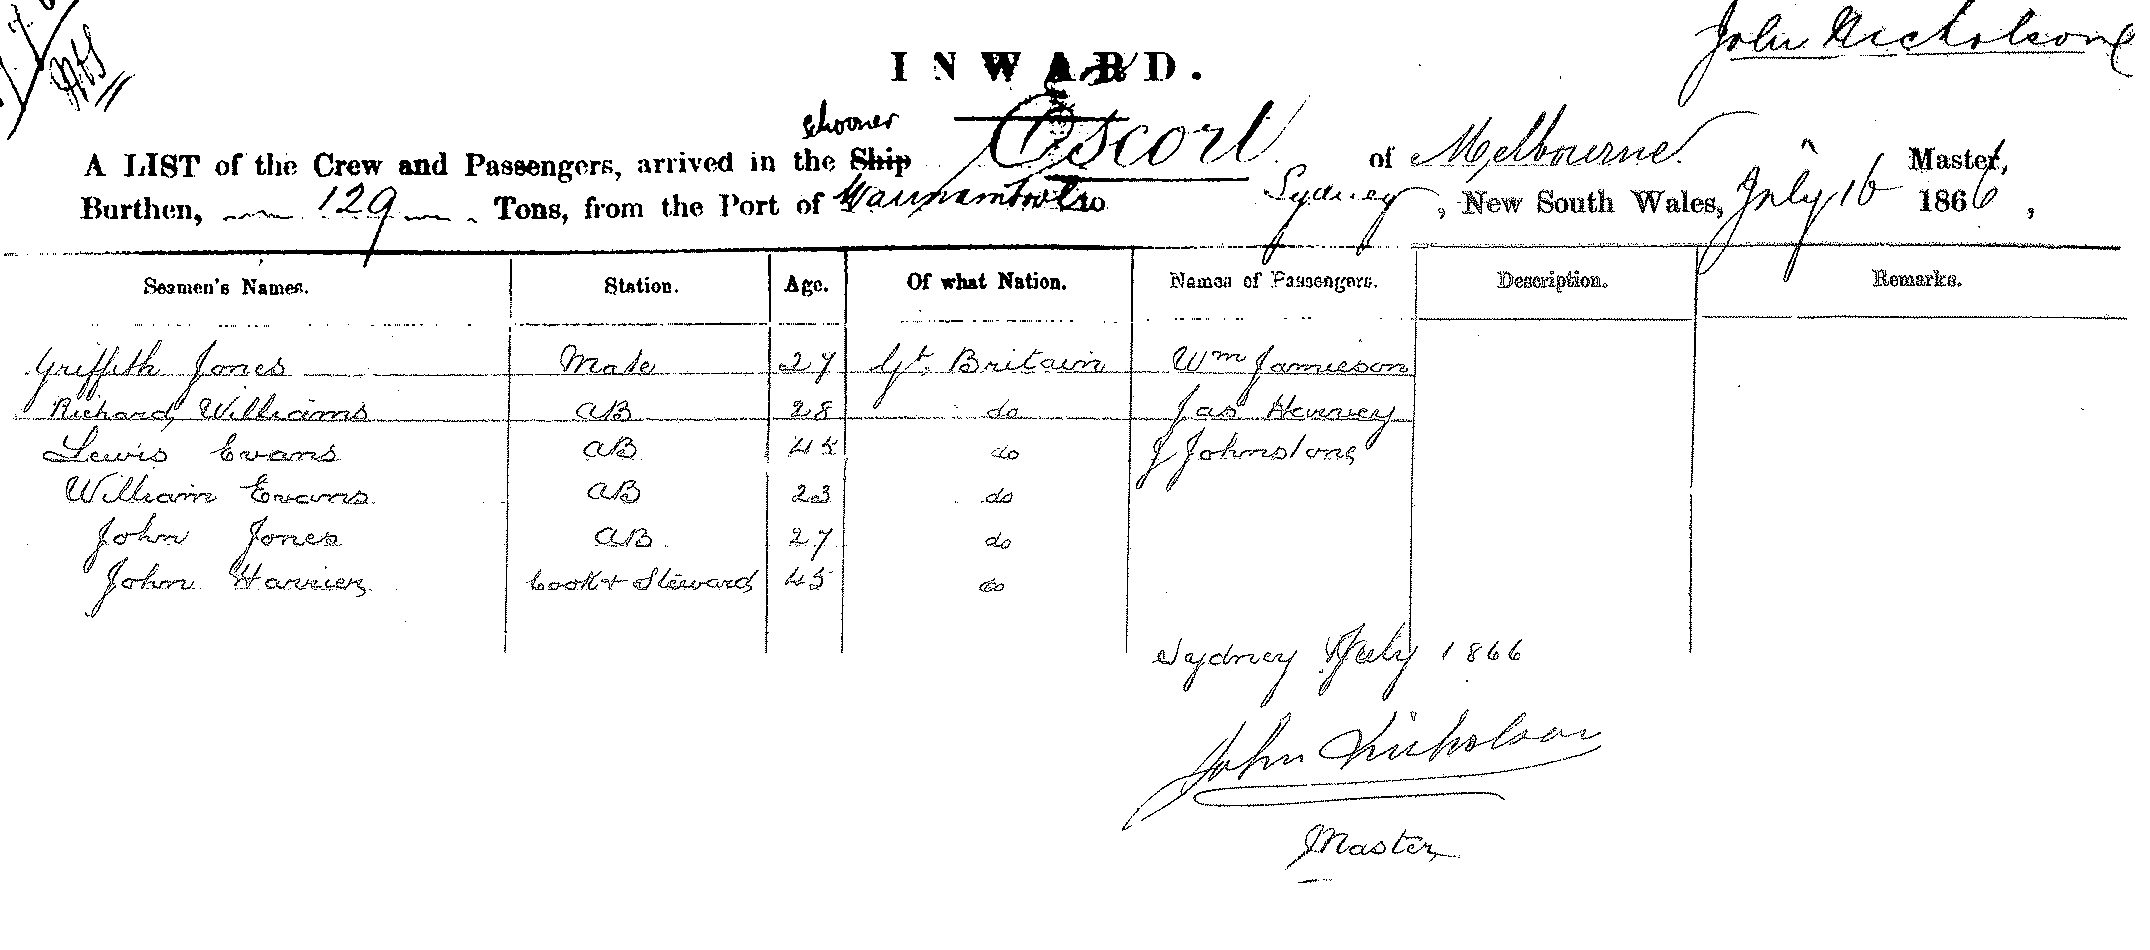 John Nicholson
INWARD.
schooner
A LIST of the Crew and Passengers, arrived in the Ship Escort of Melbourne Master,
Burthen, 129 Tons, from the Port of Warrnambool to Sydney, New South Wales, July 16 1866,
Seamen's Names. Station. Age. Of what Nation. Names of Passengers. Description. Remarks.
Griffith Jones Mate 27 Gt. Britain Wm Jamieson
Richard Williams AB 28 do Jas Harvey
Lewis Evans AB 45 do J Johnstone
William Evans AB 23 do
John Jones AB 27 do
John Cook & Steward 45 do
Sydney July 1866
John Nicholson
Master